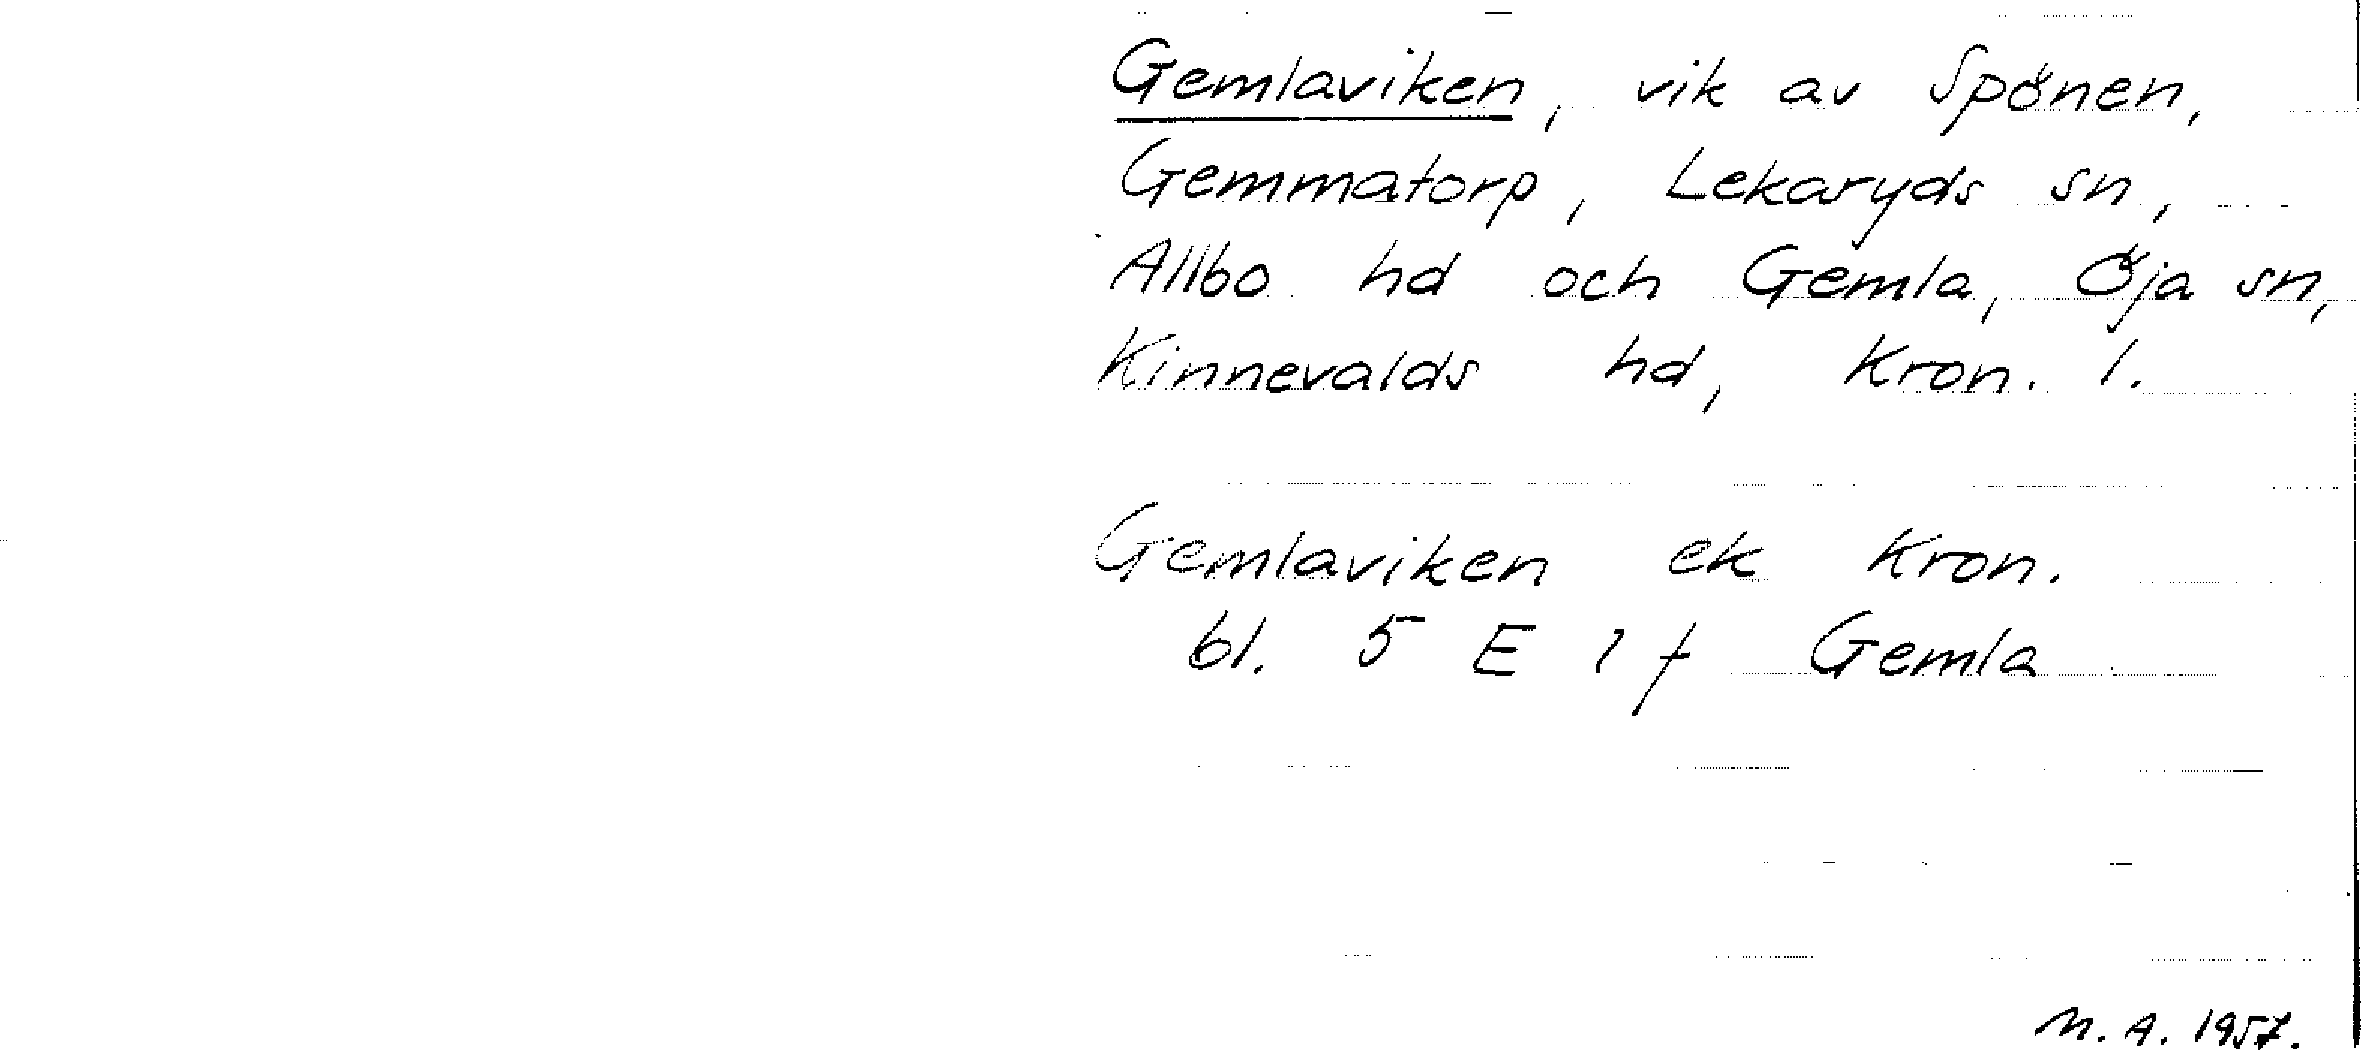 Gemlaviken, vik av Spönen,
Gemmatorp, Lekaryds sn,
Allbo hd och Gemla, Öja sn,
Kinnevalds hd, Kron. l.
Gemlaviken ek Kron.
bl. 5 E 1 f Gemla
M. A. 1957.